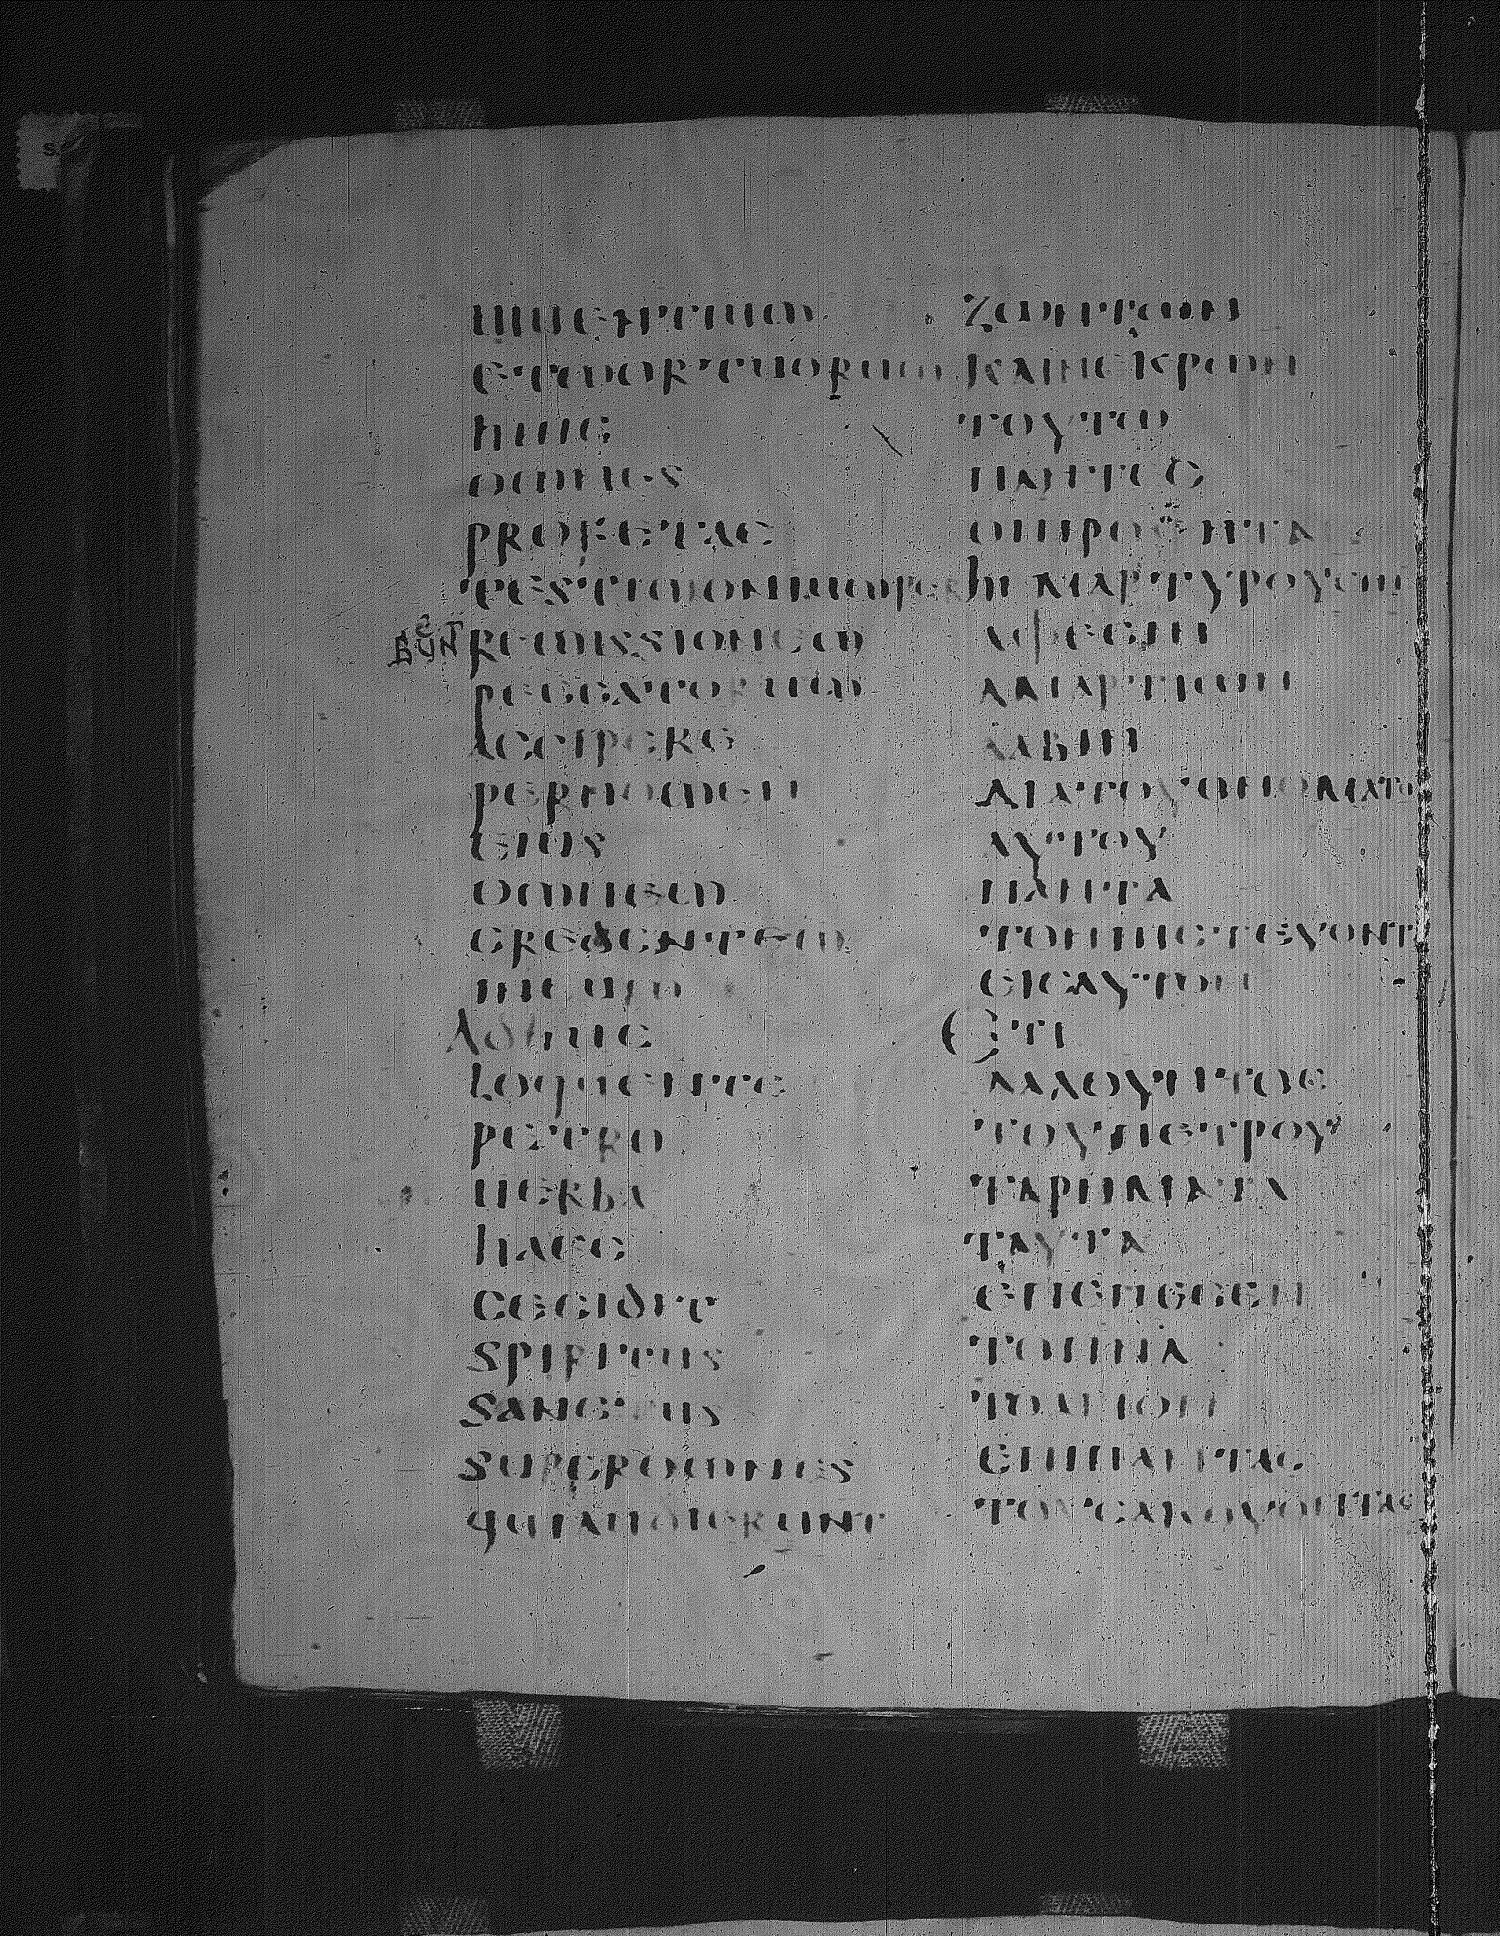 uiuentium
etmortuorum
huic
omnes
profetae
testimoniumperhi
bunt
remissionem
peccatorum
accipere
pernomen
eius
omnem
credentem
ineum
Adhuc
loquente
petro
uerba
haec
cecidit
spiritus
sanctus
superomnes
quiaudierunt
ΖΩΝΤΩΝ
ΚΑΙΝΕΚΡΩΝ
ΤΟΥΤΩ
ΠΑΝΤΕΣ
ΟΙΠΡΟΦΗΤΑΙ
ΜΑΡΤΥΡΟΥΣΙΝ
ΑΦΕΣΙΝ
ΑΜΑΡΤΙΩΝ
ΛΑΒΙΝ
ΔΙΑΤΟΥΟΝΟΜΑΤΟΣ
ΑΥΤΟΥ
ΠΑΝΤΑ
ΤΟΝΠΙΣΤΕΥΟΝΤΑ
ΕΙΣΑΥΤΟΝ
ΕΤΙ
ΛΑΛΟΥΝΤΟΣ
ΤΟΥΠΕΤΡΟΥ
ΤΑΡΗΜΑΤΑ
ΤΑΥΤΑ
ΕΠΕΠΕΣΕΝ
ΤΟΠΝΑ
ΤΟΑΓΙΟΝ
ΕΠΙΠΑΝΤΑΣ
ΤΟΥΣΑΚΟΥΟΝΤΑΣ